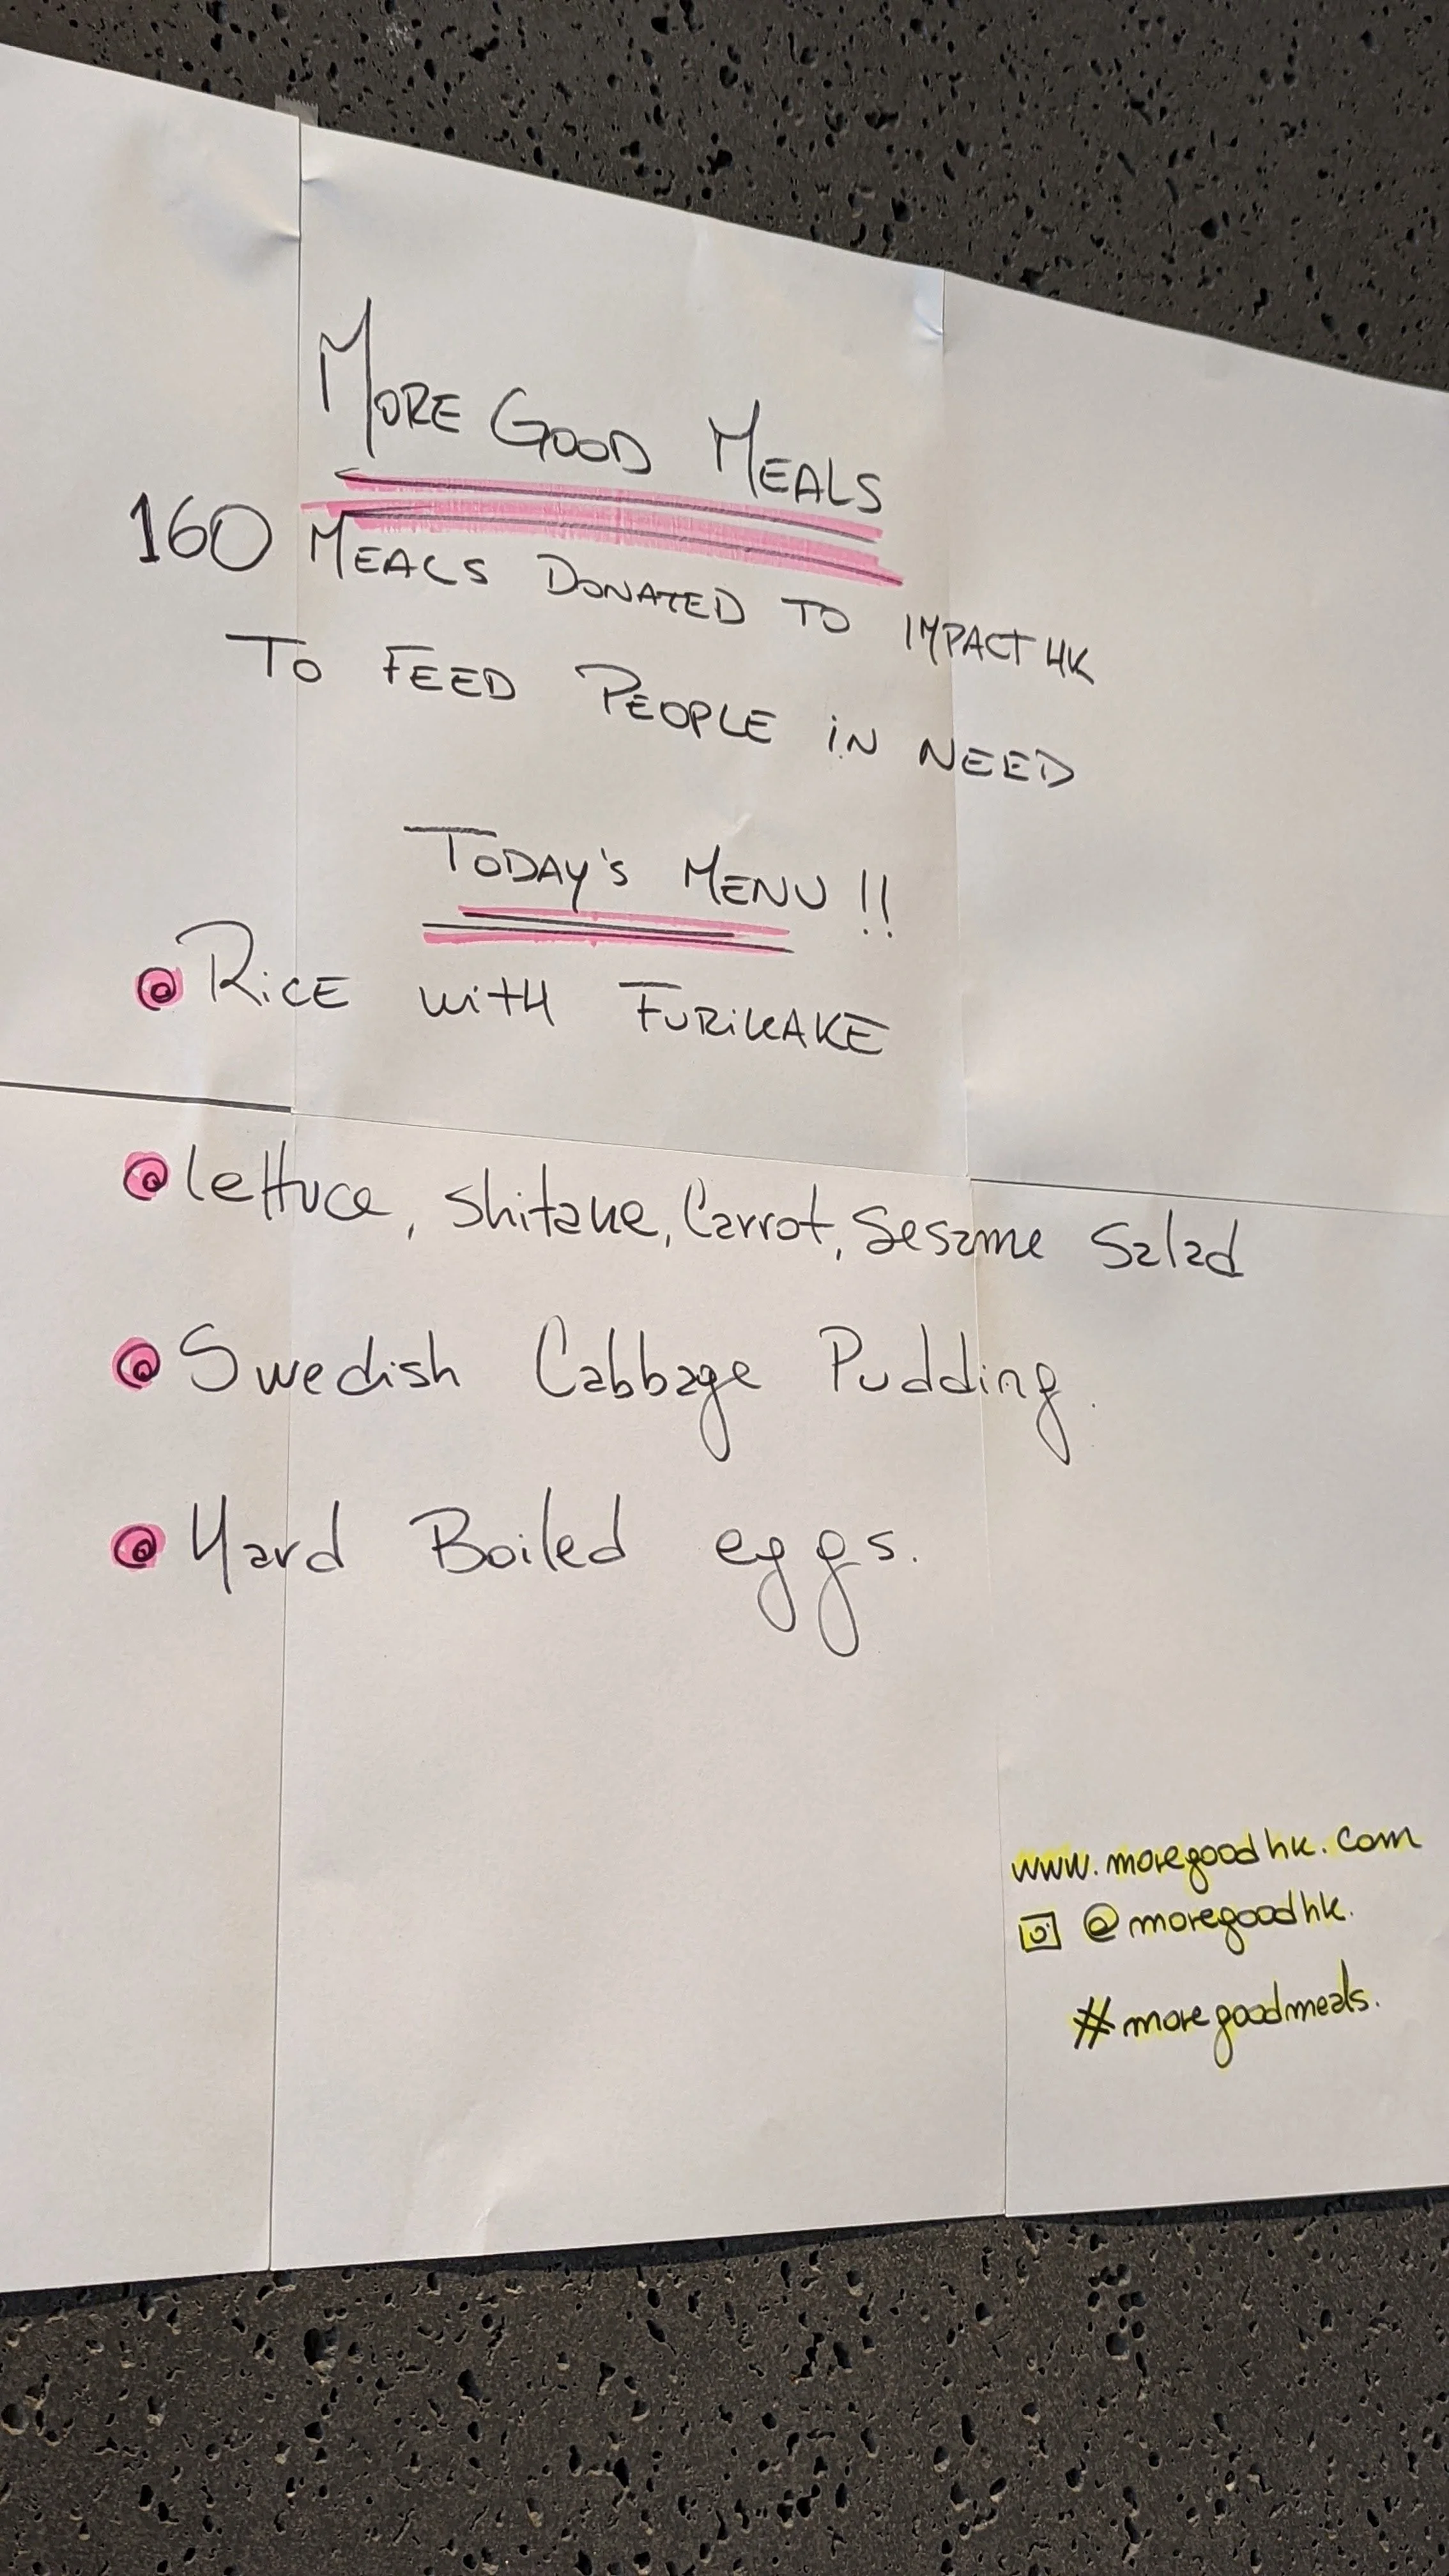 MORE GOOD MEALS
160 MEALS DONATED TO IMPACT HK
TO FEED PEOPLE IN NEED
TODAY'S MENU !!
RICE WITH FURIKAKE
Lettuce, Shitake, Carrot, Sesame Salad
Swedish Cabbage Pudding.
Hard Boiled eggs.
www.moregoodhk.com
@moregoodhk.
#moregoodmeals.